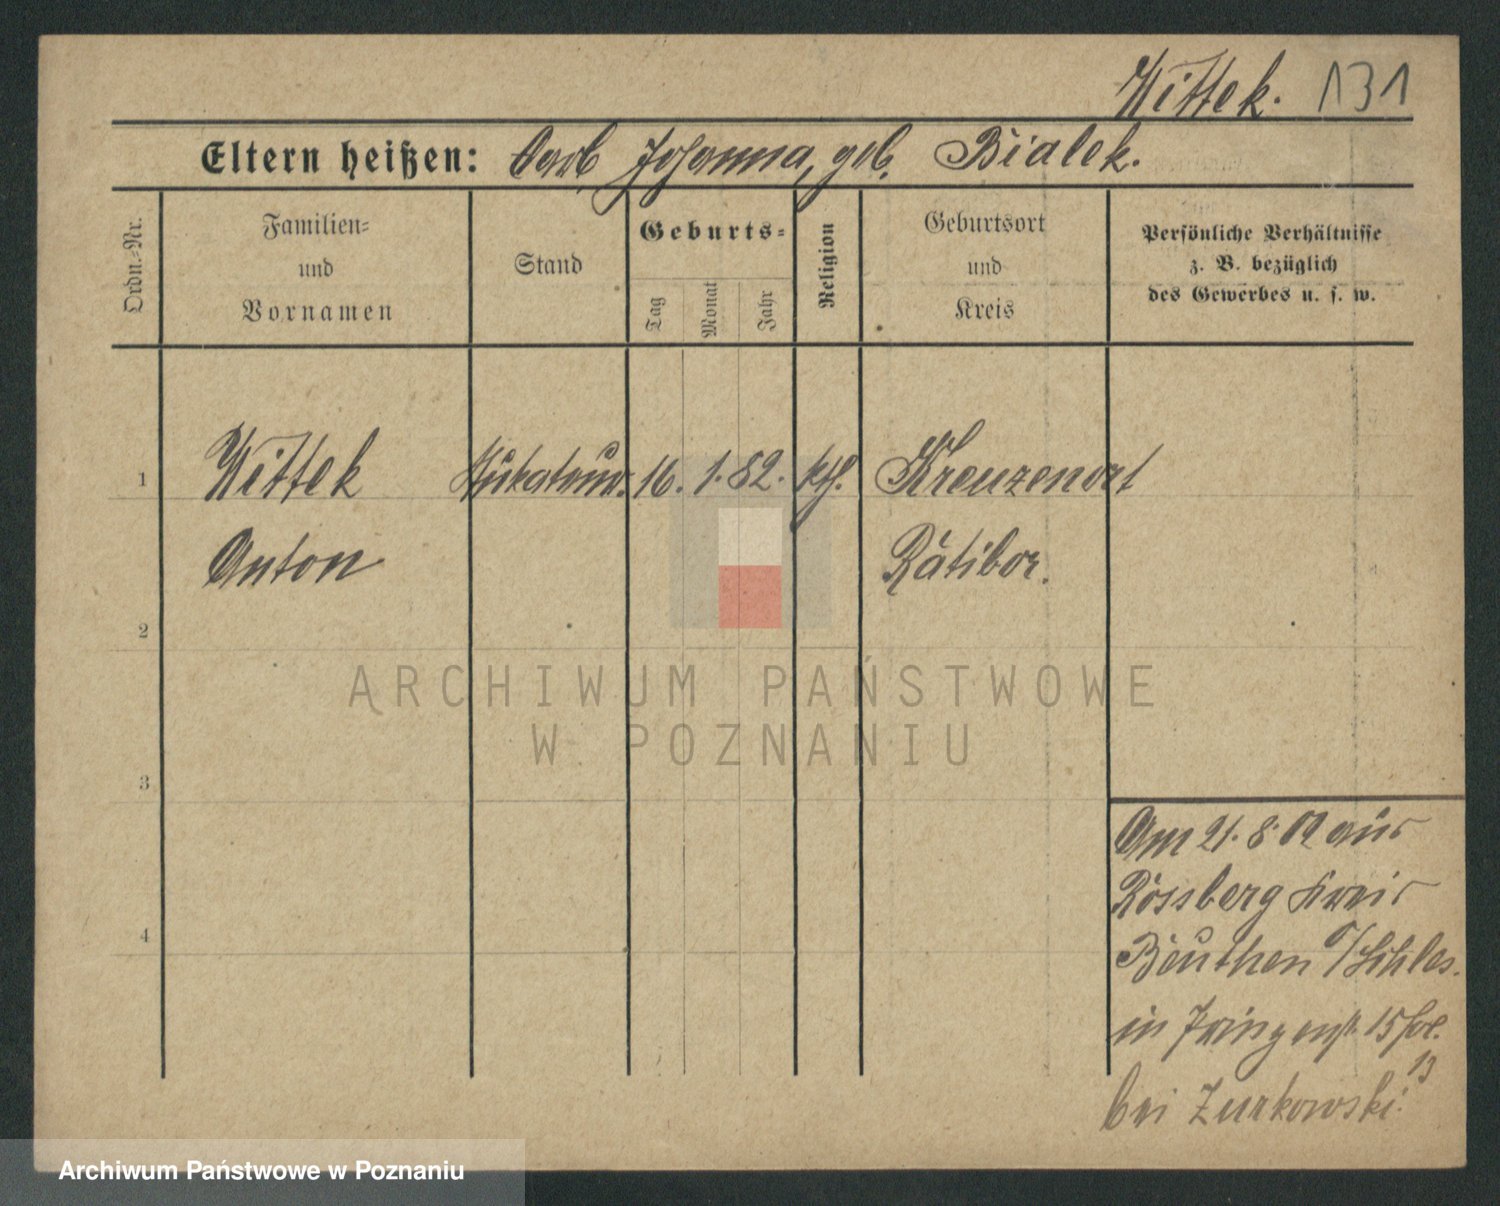 Wittek. 131
Eltern heißen: Carl Johanna, geb. Bialek.
Ordn.=Nr.
Familien=
und
Vornamen
Stand
Geburts=
Tag
Monat
Jahr
Religion
Geburtsort
und
Kreis
Persönliche Verhältnisse
z. B. bezüglich
des Gewerbes u. s. w.
1 Wittek Stukateur. 16. 1. 82. kth. Kreuzenort
Anton Ratibor.
2
3
4
Am 21. 8. 02 aus
Rossberg Kreis
Beuthen O/Schles.
in 15
13
bei Zurkowski.
ARCHIWUM PAŃSTWOWE
W POZNANIU
Archiwum Państwowe w Poznaniu